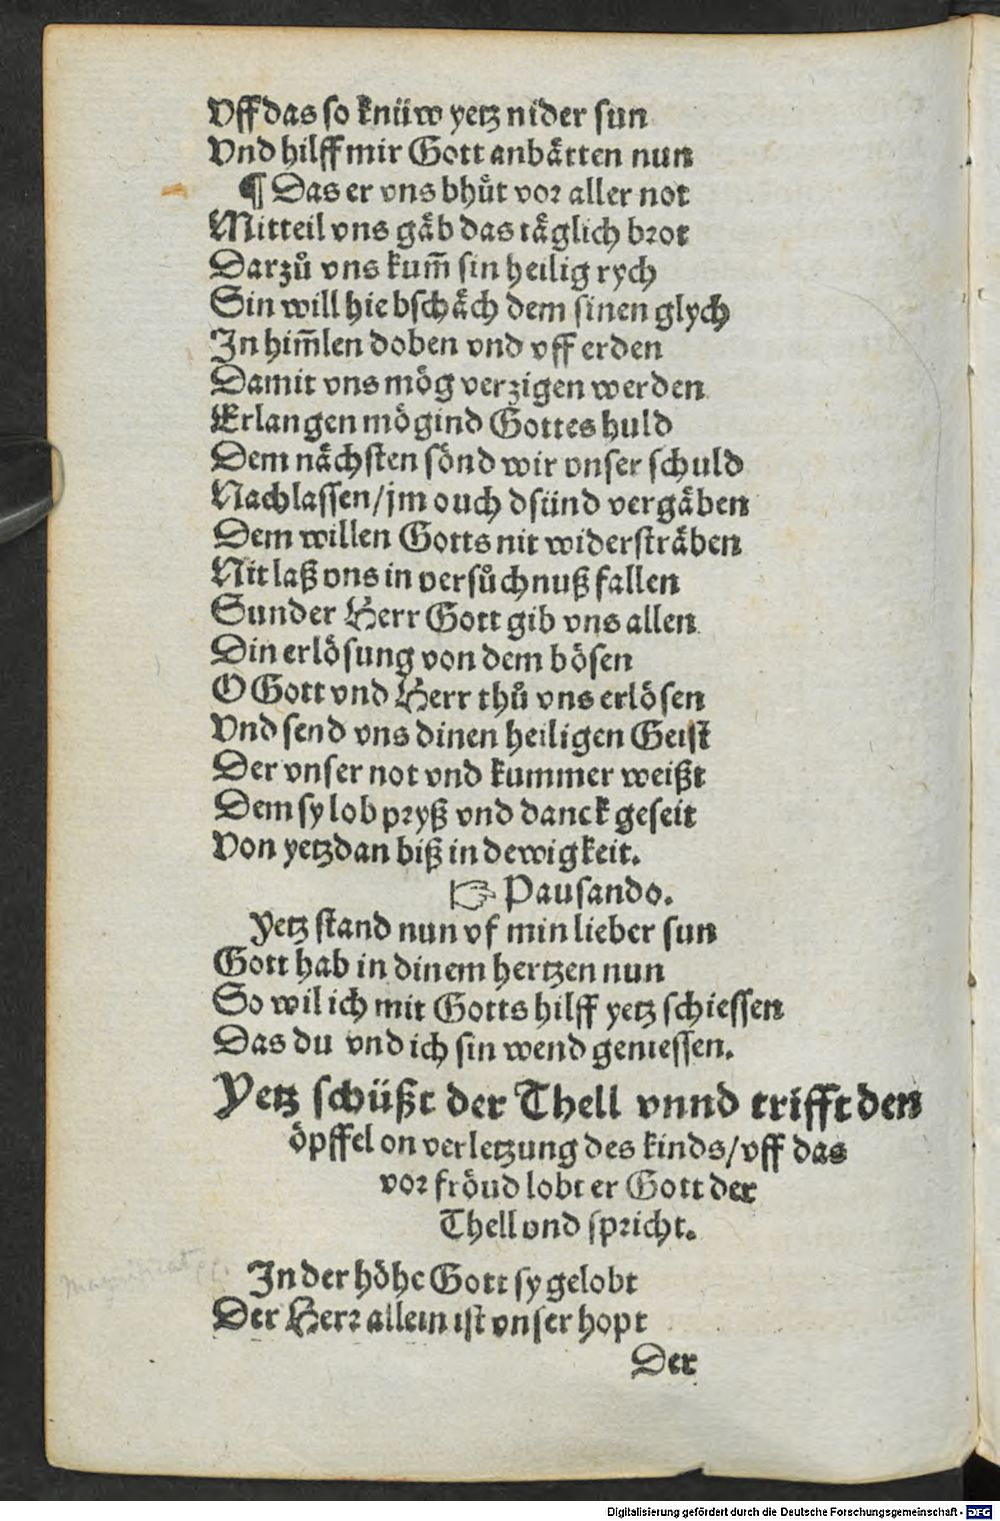 Vff das so knüw yetz nider sun
Vnd hilff mir Gott anbätten nun
¶ Das er vns bhuͤt vor aller not
Mitteil vns gäb das täglich brot
Darzuͦ vns kum̄ sin heilig rych
Sin will hie bschäch dem sinen glych
In him̄len doben vnd vff erden
Damit vns mög verzigen werden
Erlangen mögind Gottes huld
Dem nächsten sönd wir vnser schuld
Nachlassen/jm ouch dsünd vergäben
Dem willen Gotts nit widersträben
Nit laß vns in versuͦchnuß fallen
Sunder Herr Gott gib vns allen
Din erlösung von dem bösen
O Gott vnd Herr thuͦ vns erlösen
Vnd send vns dinen heiligen Geist
Der vnser not vnd kummer weißt
Dem sy lob pryß vnd danck geseit
Von yetzdan biß in dewigkeit.
☞ Pausando.
Yetz stand nun vf min lieber sun
Gott hab in dinem hertzen nun
So wil ich mit Gotts hilff yetz schiessen
Das du vnd ich sin wend geniessen.
Yetz schüßt der Thell vnnd trifft den
öpffel on verletzung des kinds/vff das
vor fröud lobt er Gott der
Thell vnd spricht.
In der höhe Gott sy gelobt
Der Herr allein ist vnser hopt
Der
Digitalisierung gefördert durch die Deutsche Forschungsgemeinschaft - DFG